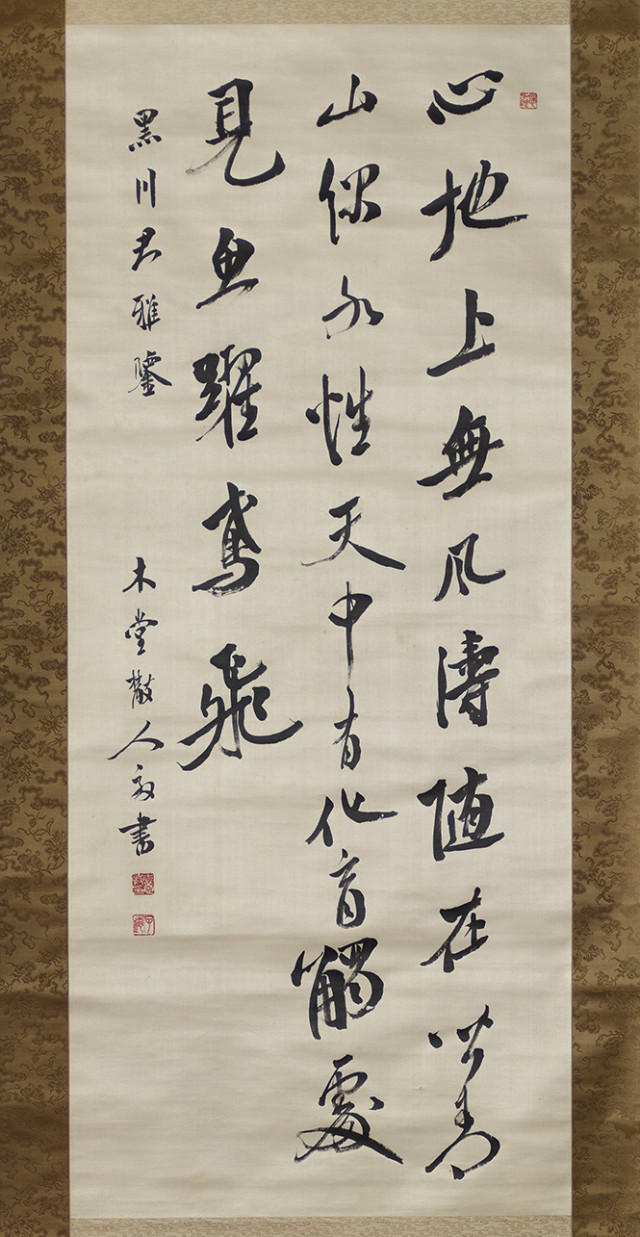 心地上無風濤随在皆青
山緑水性天中有化育觸處
見魚躍鳶飛
黒川君雅鑒
木堂散人毅書